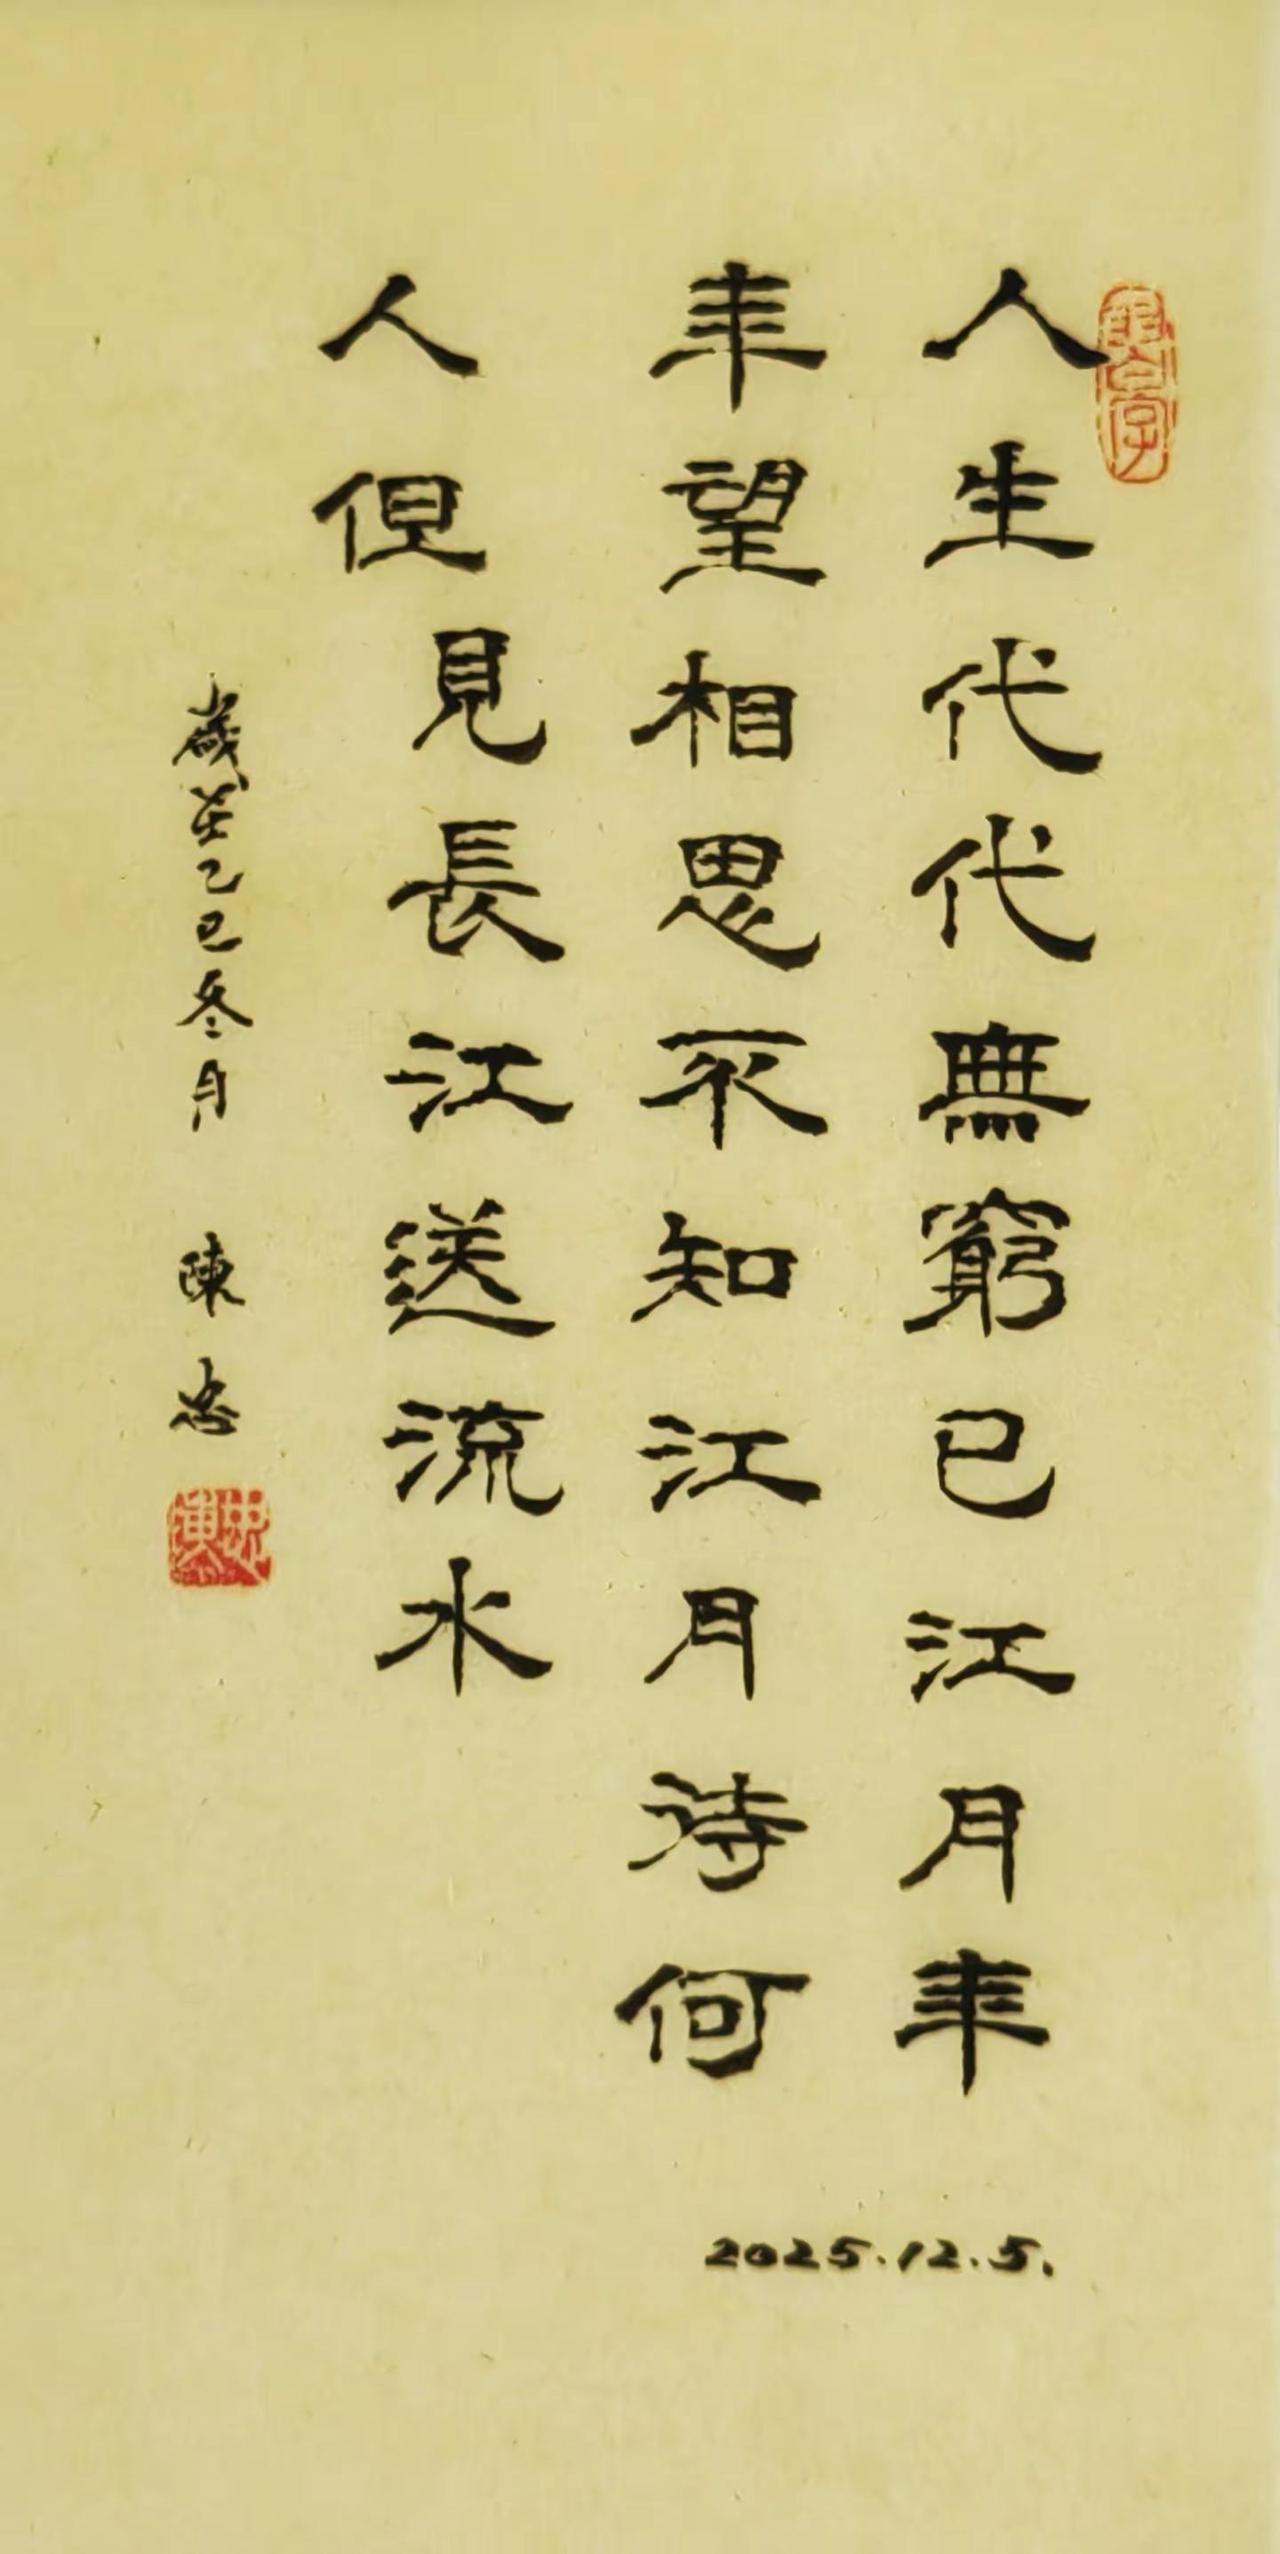 人生代代無窮已江月年
年望相思不知江月待何
人但見長江送流水
歲在乙巳冬月 陳忠
2025.12.5.